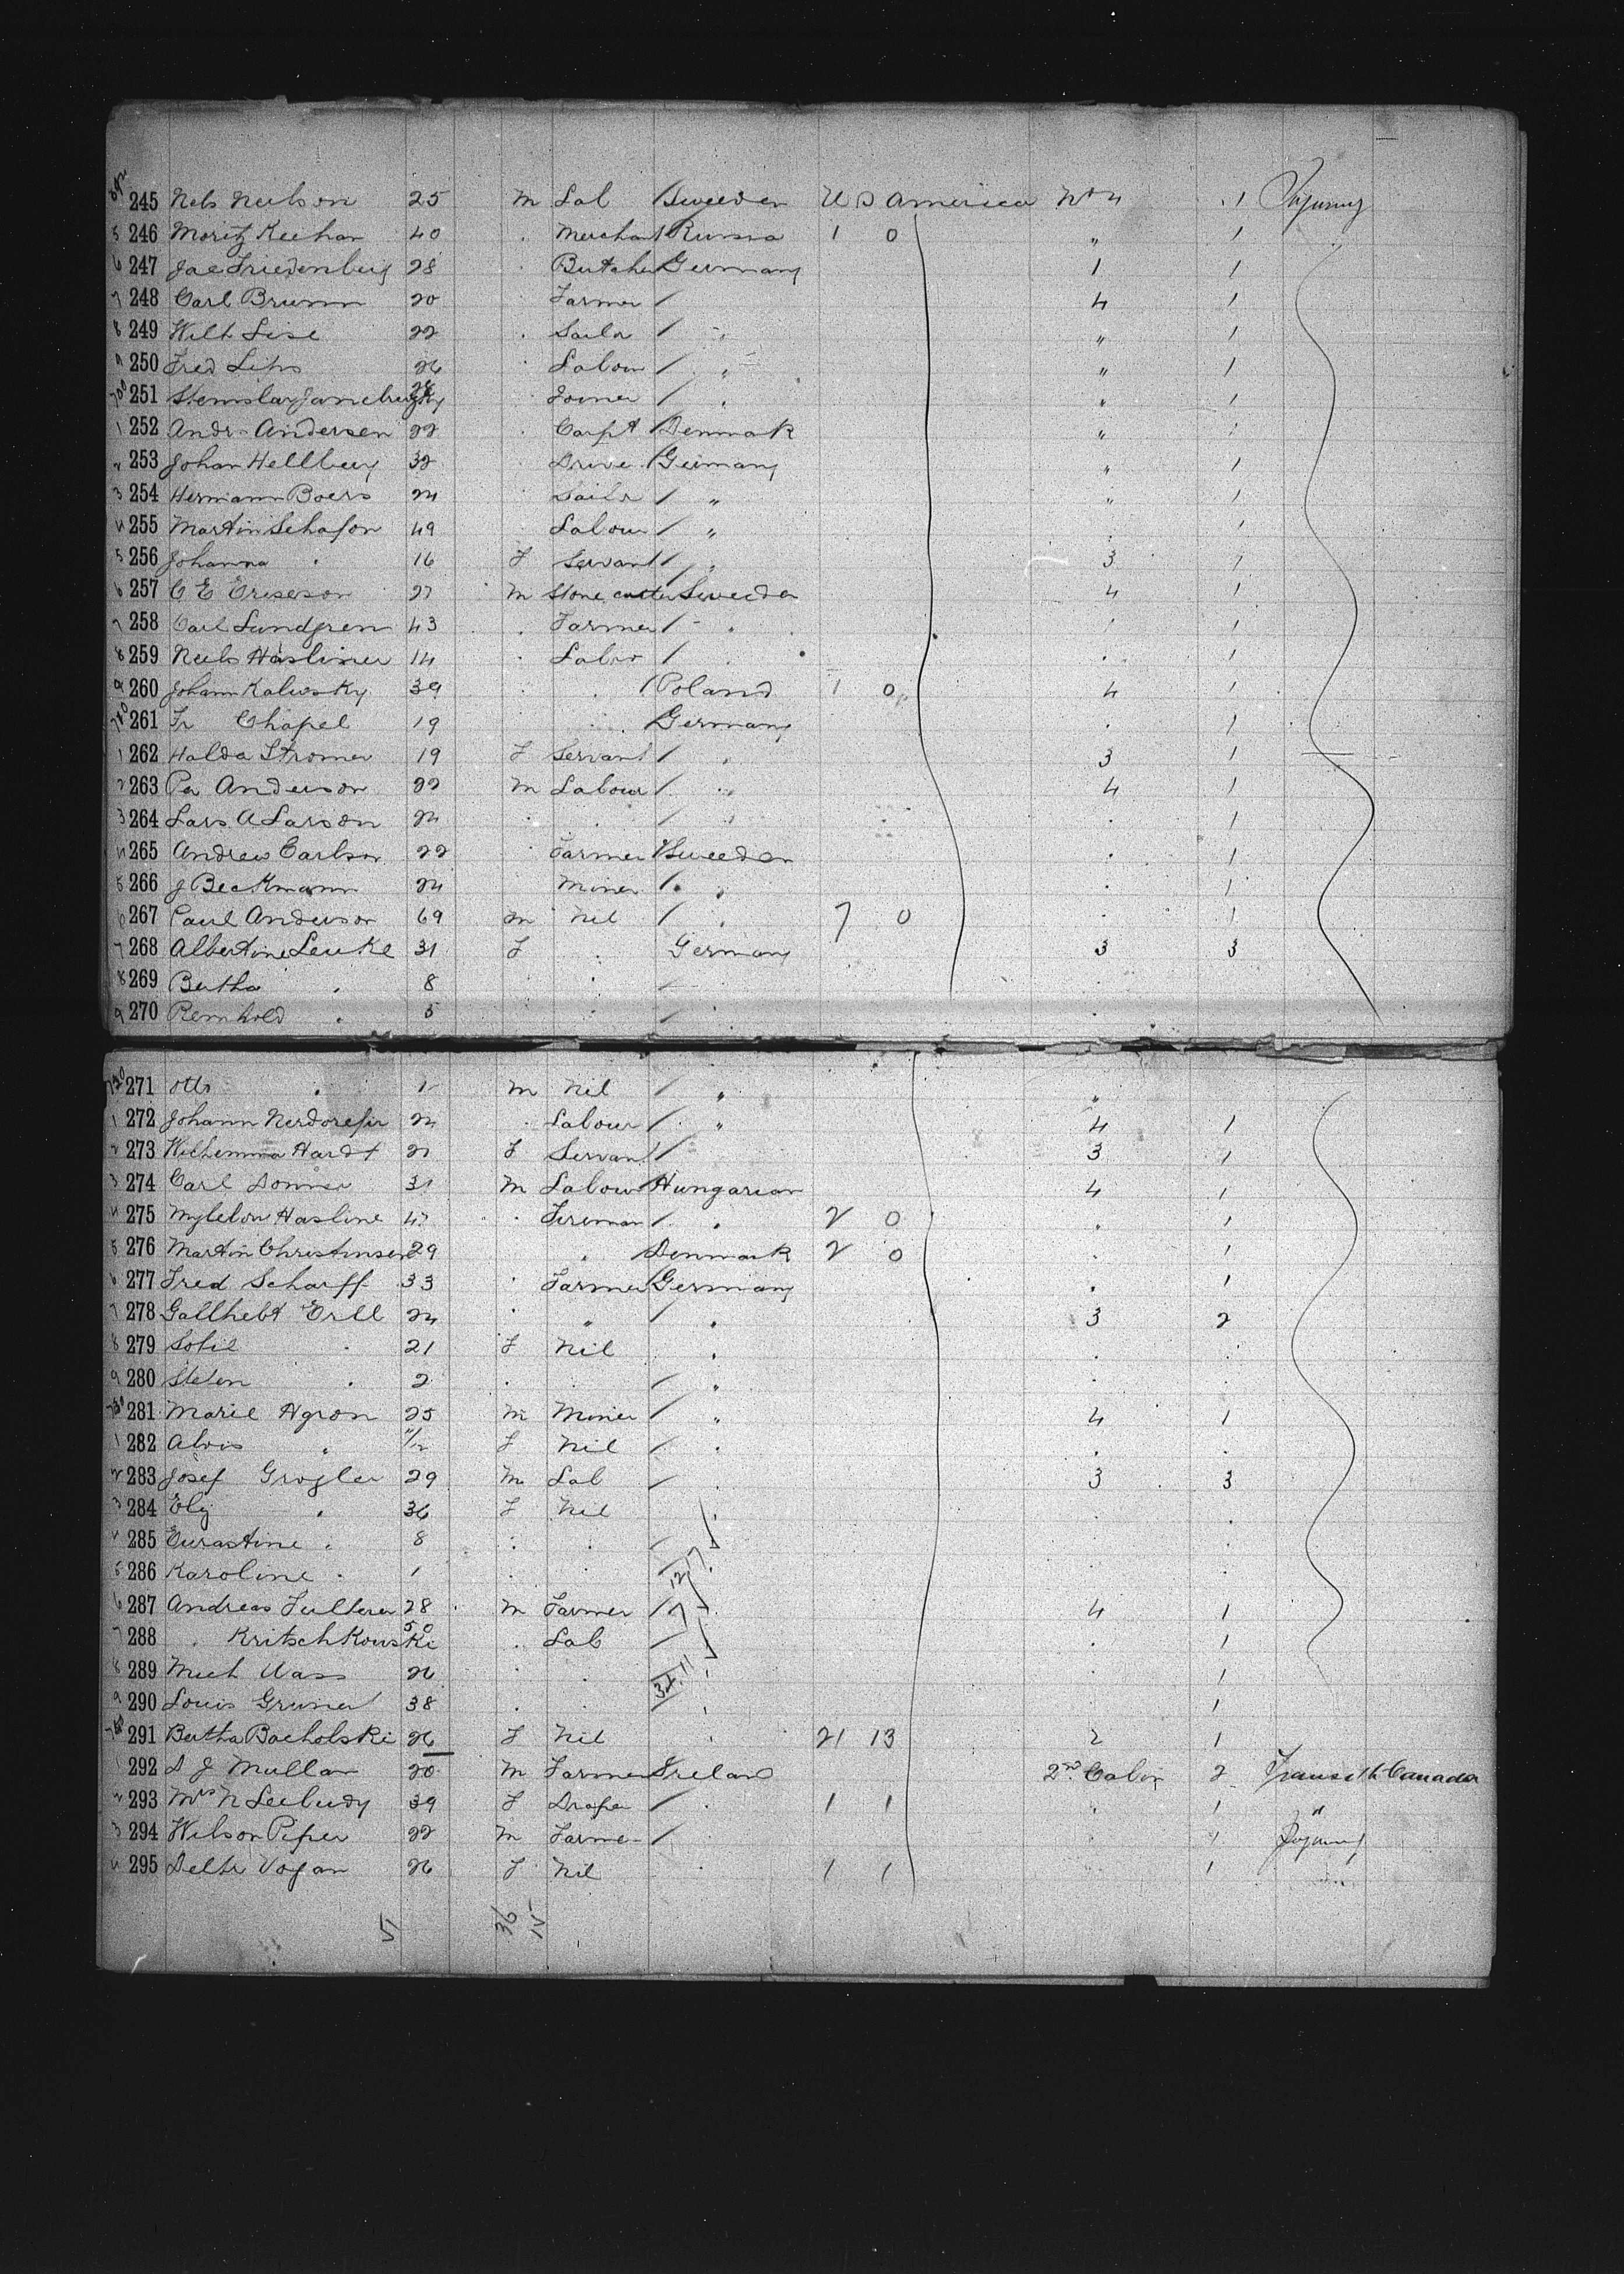 245 Nels Neilson 25 m Lab Sweeden U S America No 4 1 Sojourny
246 Moritz Keehan 40 Merchant Russia 1 0 " 1
247 Jac Friedenberg 28 Butcher Germany 1 1
248 Carl Brumm 20 Farmer 4 1
249 Wilh 22 Sailor " 1
250 Fred 26 Labour " " 1
251 28 Joiner " 1
252 Andr Andersen 22 Carpt Denmark "
253 Johan Hellberg 32 Germany " 1
254 Hermann Boers 24 Sailor " " 1
255 Martin Schafon 49 Labour "
256 Johanna 16 F Servant 3 1
257 C E Ericson 27 m Stone cutter Sweeden 4 1
258 Carl Lundgren 43 Farmer 1
259 Neels 14 Labor 1
260 Johann Kalwsky 39 Poland 1 0 4 1
261 Fr Chapel 19 Germany 1
262 Halda Stromer 19 F Servant 3 1
263 Per Anderson 22 m Labour 4 1
264 Lars A Larson 24 1
265 Andrew Carlson 22 Farmer Sweeden 1
266 J Beckmann 24 Miner 1
267 Paul Anderson 69 m Nil 7 0 1
268 Albertine Leuke 31 F Germany 3 3
269 Bertha 8
270 Reinhold 5
271 Otto 1 m Nil " "
272 Johann 24 Labour " 4 1
273 Wilhemina Hardt 21 F Servant 3 1
274 Carl Donner 31 m Labour Hungarian 4 1
275 Hasline 47 Fireman 2 0 1
276 Martin Christinsen 29 Denmark 2 0 1
277 Fred Scharff 33 Farmer Germany 1
278 Erll 24 " 3 2
279 Sofie 21 F Nil
280 Stefen 2 "
281 Marie Agron 25 m Miner 4 1
282 Alois " 11/12 F Nil
283 Josef Grogler 29 m Lab 3 3
284 Ely 36 F Nil
285 8
286 Karoline 1
287 Andreas 28 m Farmer 4 1
288 Kritschkowski 50 Lab 1
289 Mich Wass 26 1
290 Louis Gruner 38 1
291 Bertha Bacholski 26 F Nil 21 13 2 1
292 D J Mullan 20 m Farmer Ireland 2nd Cabin 2 Transit Canada
293 Mrs N 39 F Draper 1 1 1 "
294 Wilson Piper 22 m Farmer 1 Sojourny
295 Vogan 26 F Nil 1 1 1
51 36 15